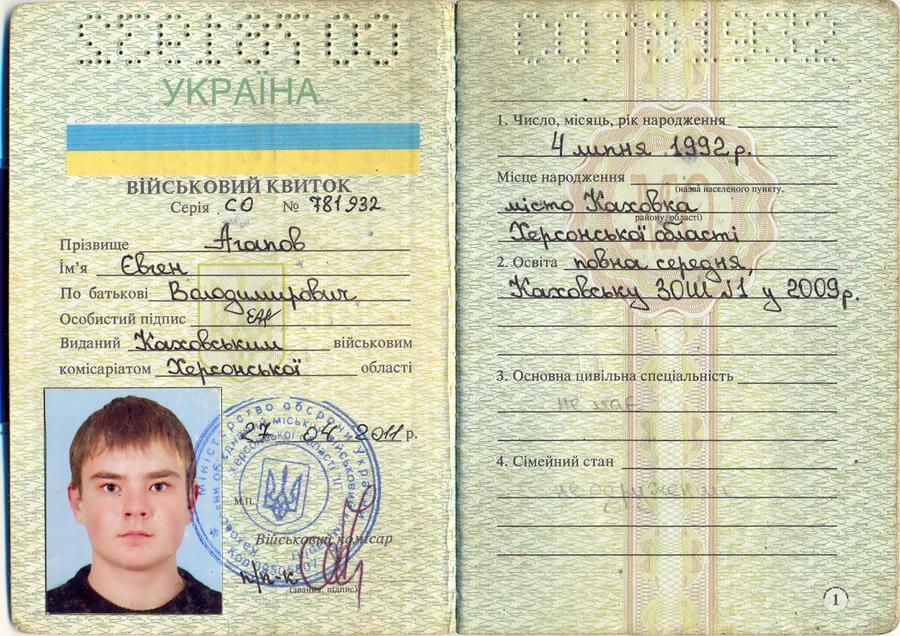 УКРАЇНА
ВІЙСЬКОВИЙ КВИТОК
Серія СО № 781932
Прізвище Агапов
Ім'я Євген
По батькові Володимирович
Особистий підпис
Виданий Каховським військовим
комісаріатом Херсонської області
27 04 2011 р.
М.П.
Військовий комісар
п/п-к
(звання, підпис)
СО 781932
1. Число, місяць, рік народження
4 липня 1992 р.
Місце народження
(назва населеного пункту,
місто Каховка
району, області)
Херсонської області
2. Освіта повна середня,
Каховську ЗОШ №1 у 2009 р.
3. Основна цивільна спеціальність
не має
4. Сімейний стан
1